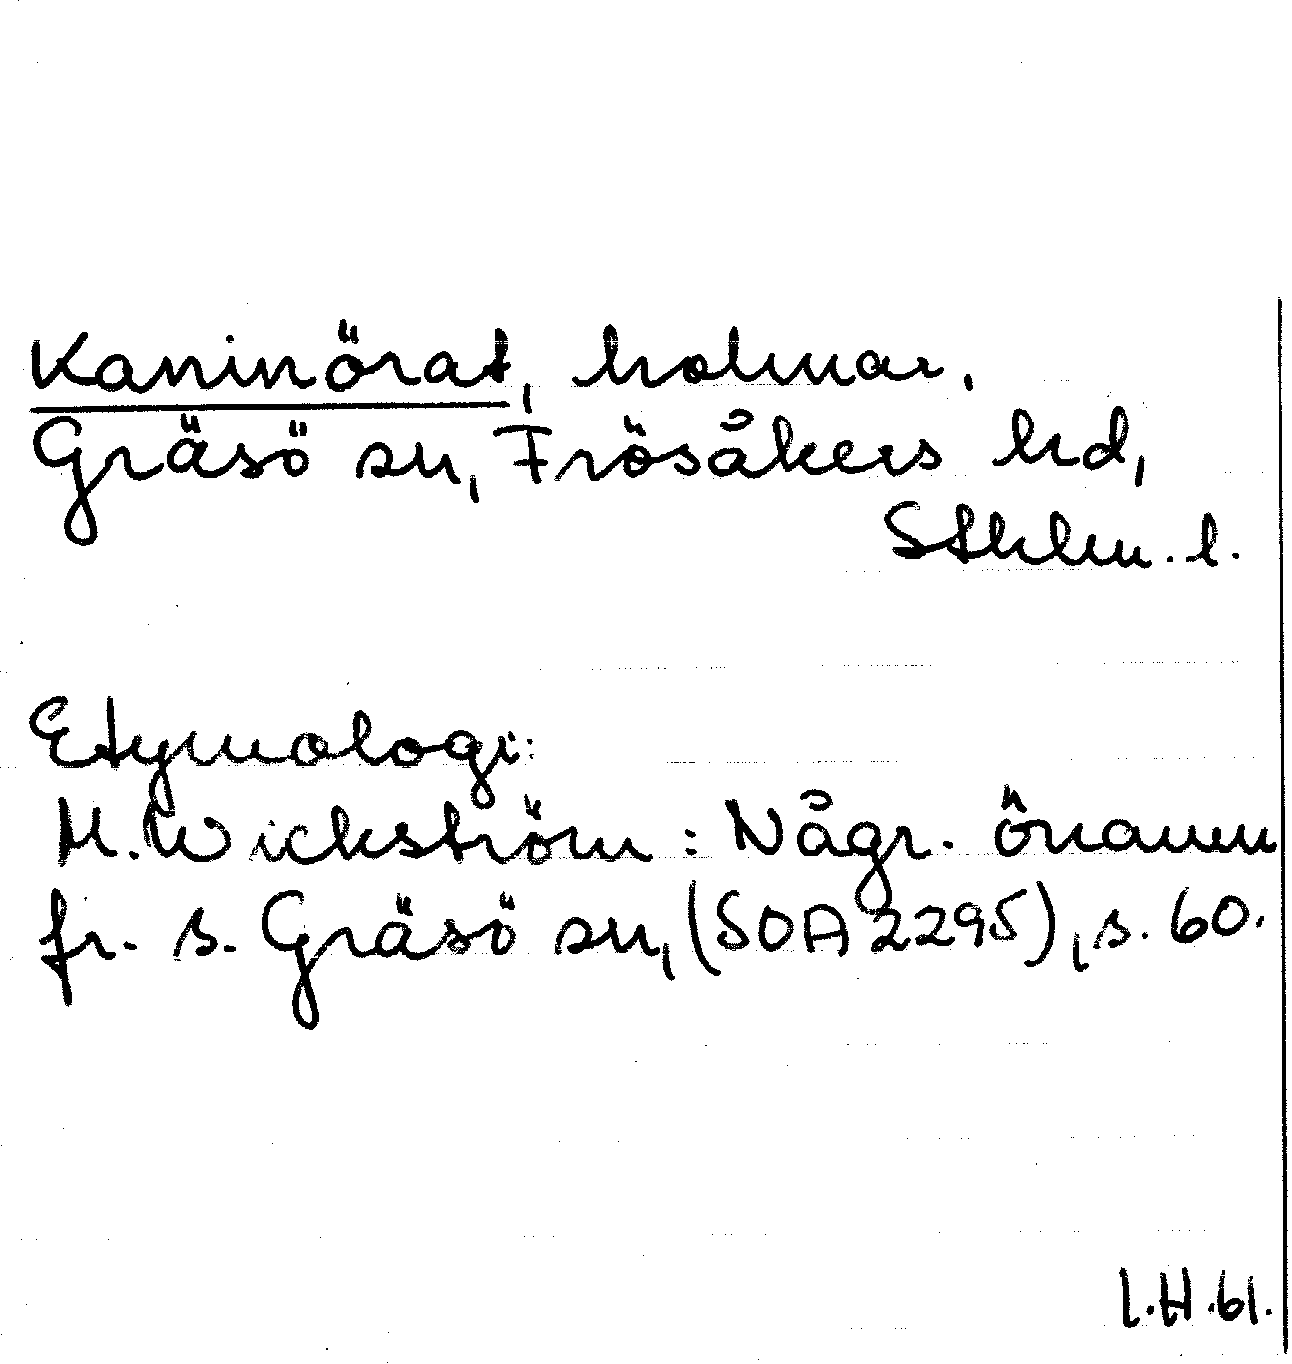 Kaninörat, holmar.
Gräsö sn, Frösåkers hd,
Sthlm. l.
Etymologi:
M. Wickström: Någr. önamn
fr. s. Gräsö sn, (SOA 2295), s. 60.
I.H. 61.